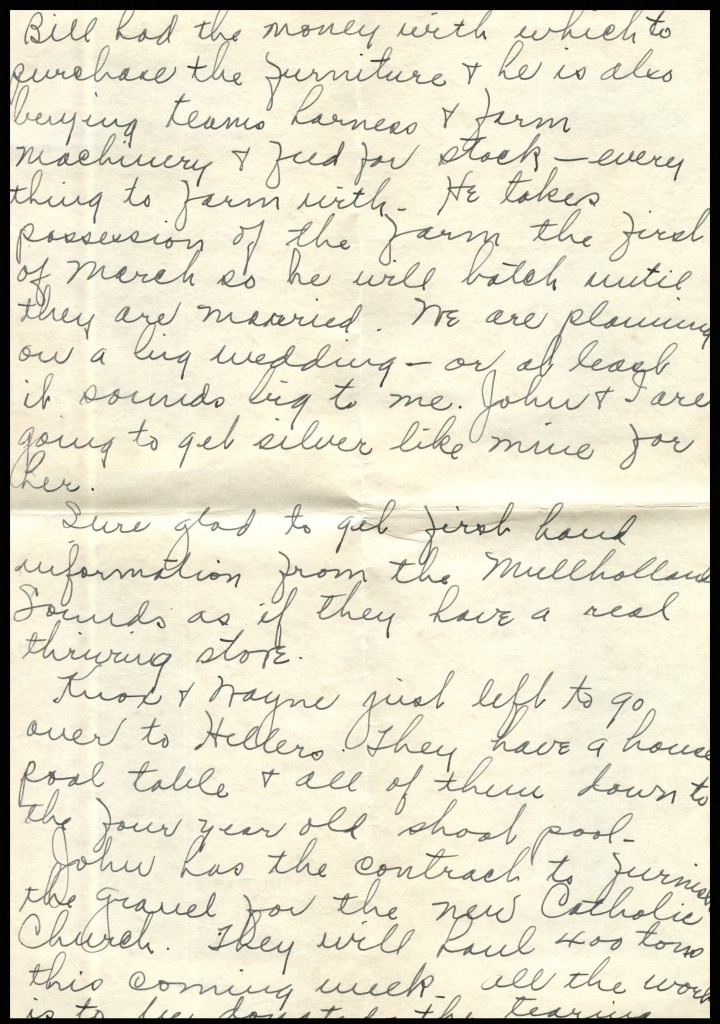 Bill had the money with which to
purchase the furniture & he is also
buying teams harness & farm
machinery & feed for stock — every
thing to farm with. He takes
possession of the farm the first
of March so he will batch until
they are married. We are planning
on a big wedding — or at least
it sounds big to me. John & I are
going to get silver like mine for
her.
Sure glad to get first hand
information from the Mullholland
Sounds as if they have a real
thriving store.
Knox & Wayne just left to go
over to Hillers. They have a house
pool table & all of them down to
the four year old shoot pool.
John has the contract to furnish
the gravel for the new Catholic
Church. They will haul 400 tons
this coming week. all the work
is to be donated. the tearing